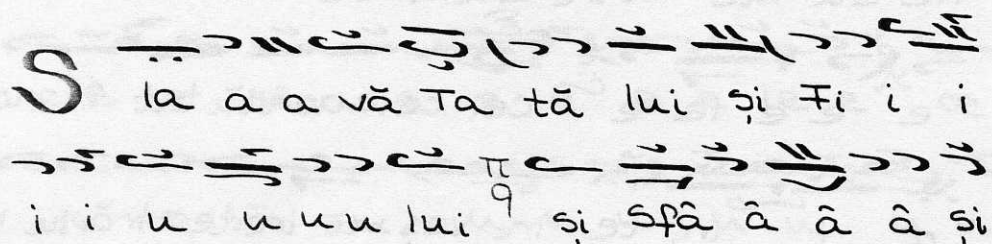 Sla a a vă Ta tă lui și Fi i i
i i u u u u lui π q și Sfâ â â â și